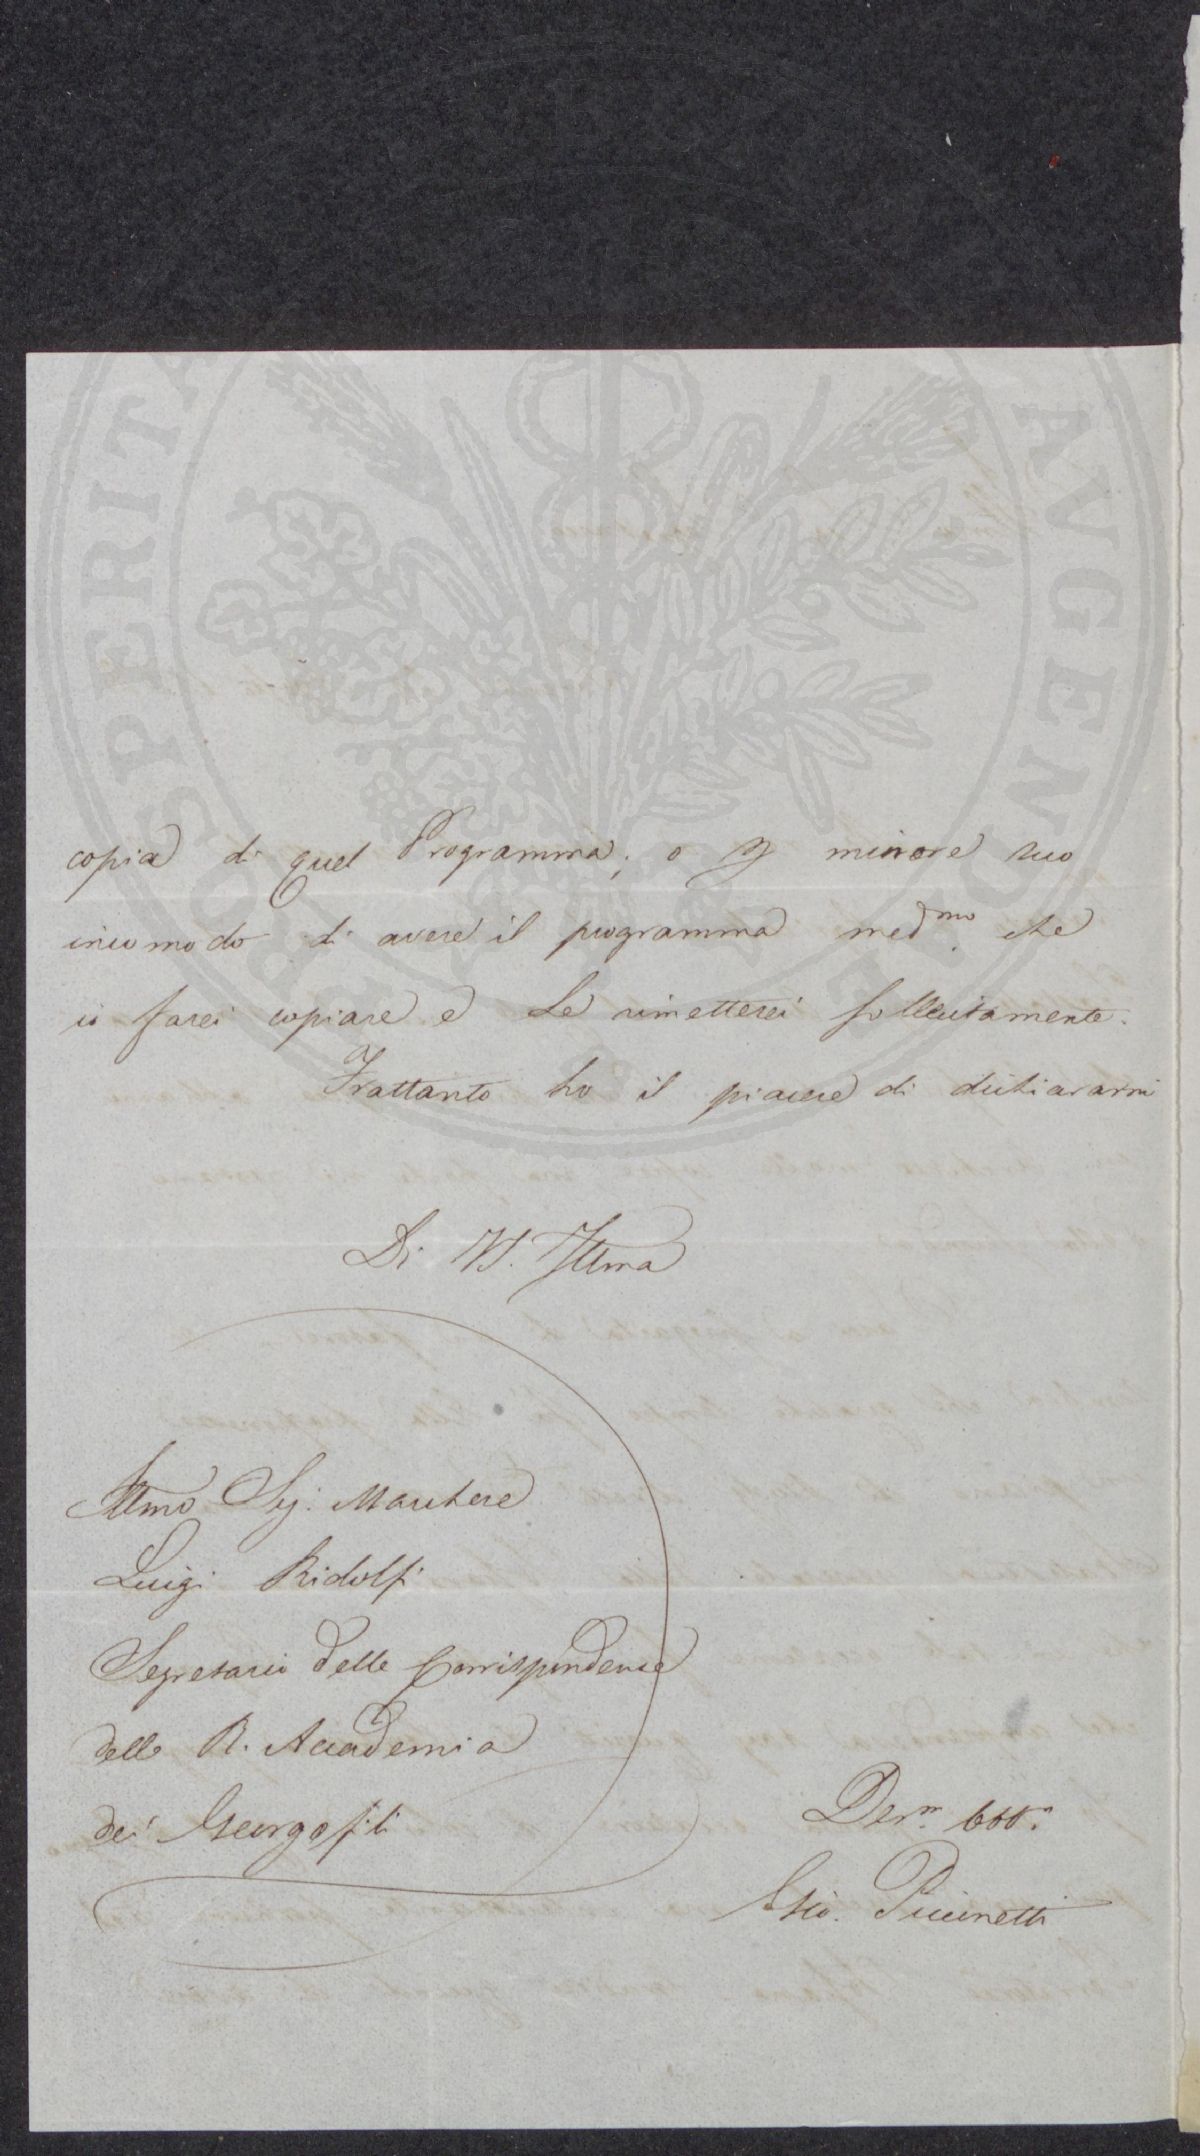 copia di quel Programma; o p minore suo
incomodo di avere il programma medmo. che
io farei copiare e Le rimetterei sollecitamente.
Frattanto ho il piacere di dichiararmi
Di V.S. Illma
Illmo Sig. Marchese
Luigi Ridolfi
Segretario delle Corrispondenze
della R. Accademia
dei Georgofili
Devmo
Gio. Piccinetti
PROSPERITA
AVGENDAE